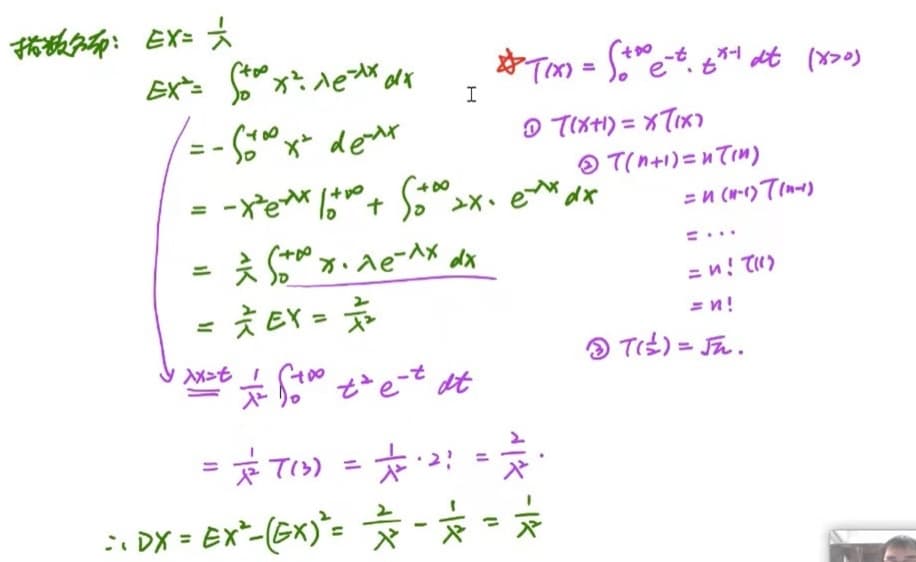 指数分布: EX = 1/λ
EX² = ∫₀^{+∞} x²·λe^{-λx} dx
= -∫₀^{+∞} x² de^{-λx}
= -x²e^{-λx}|₀^{+∞} + ∫₀^{+∞} 2x·e^{-λx} dx
= 2/λ ∫₀^{+∞} x·λe^{-λx} dx
= 2/λ EX = 2/λ²
λx=t 1/λ² ∫₀^{+∞} t² e^{-t} dt
= 1/λ² Γ(3) = 1/λ²·2! = 2/λ².
∴ DX = EX²-(EX)² = 2/λ² - 1/λ² = 1/λ²
☆ Γ(x) = ∫₀^{+∞} e^{-t}·t^{x-1} dt (x>0)
① Γ(x+1) = xΓ(x)
② Γ(n+1) = nΓ(n)
= n(n-1)Γ(n-1)
= ···
= n! Γ(1)
= n!
③ Γ(1/2) = √π.